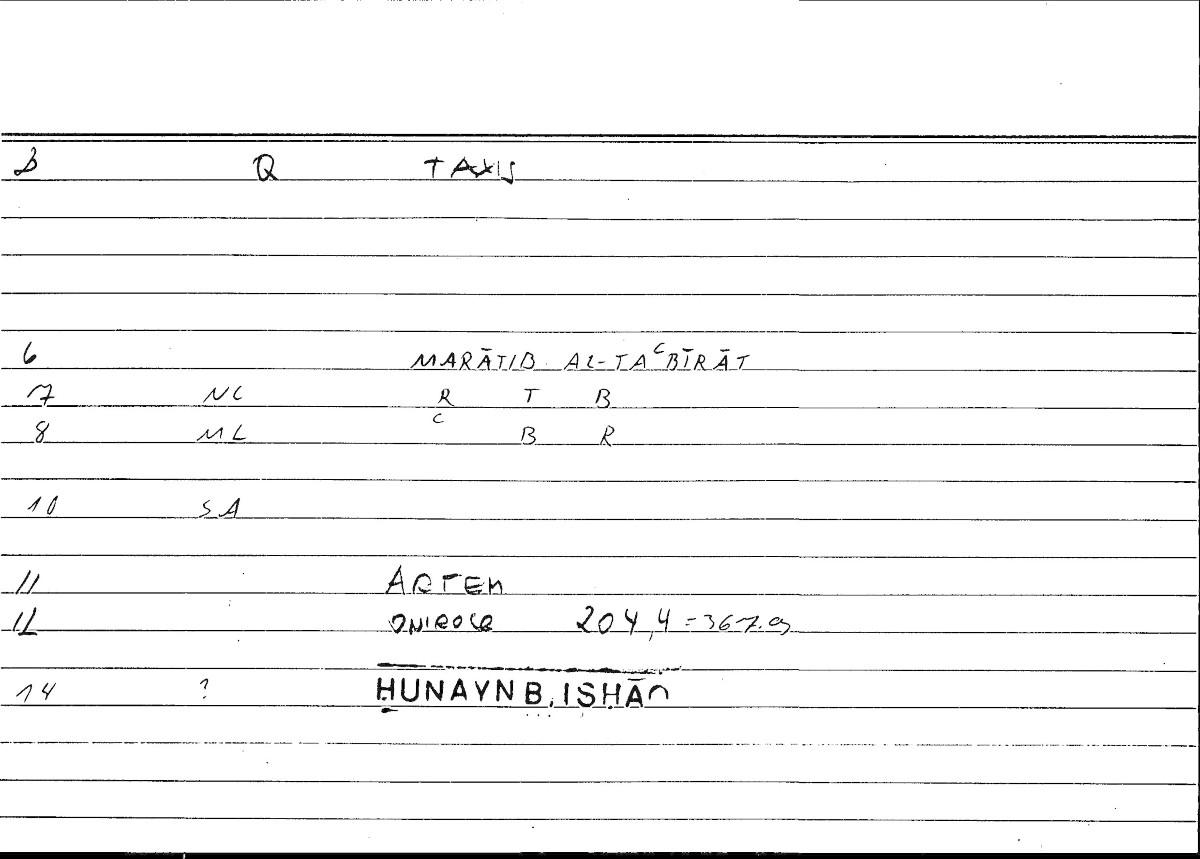 B Q TAXIS
6 MARĀTIB AL-TAʿBĪRĀT
7 NC R T B
8 ML ʿ B R
10 SA
11 ARTEM
12 ONIROCR 204,4 = 367.9
14 ? ḤUNAYN B. ISḤĀQ